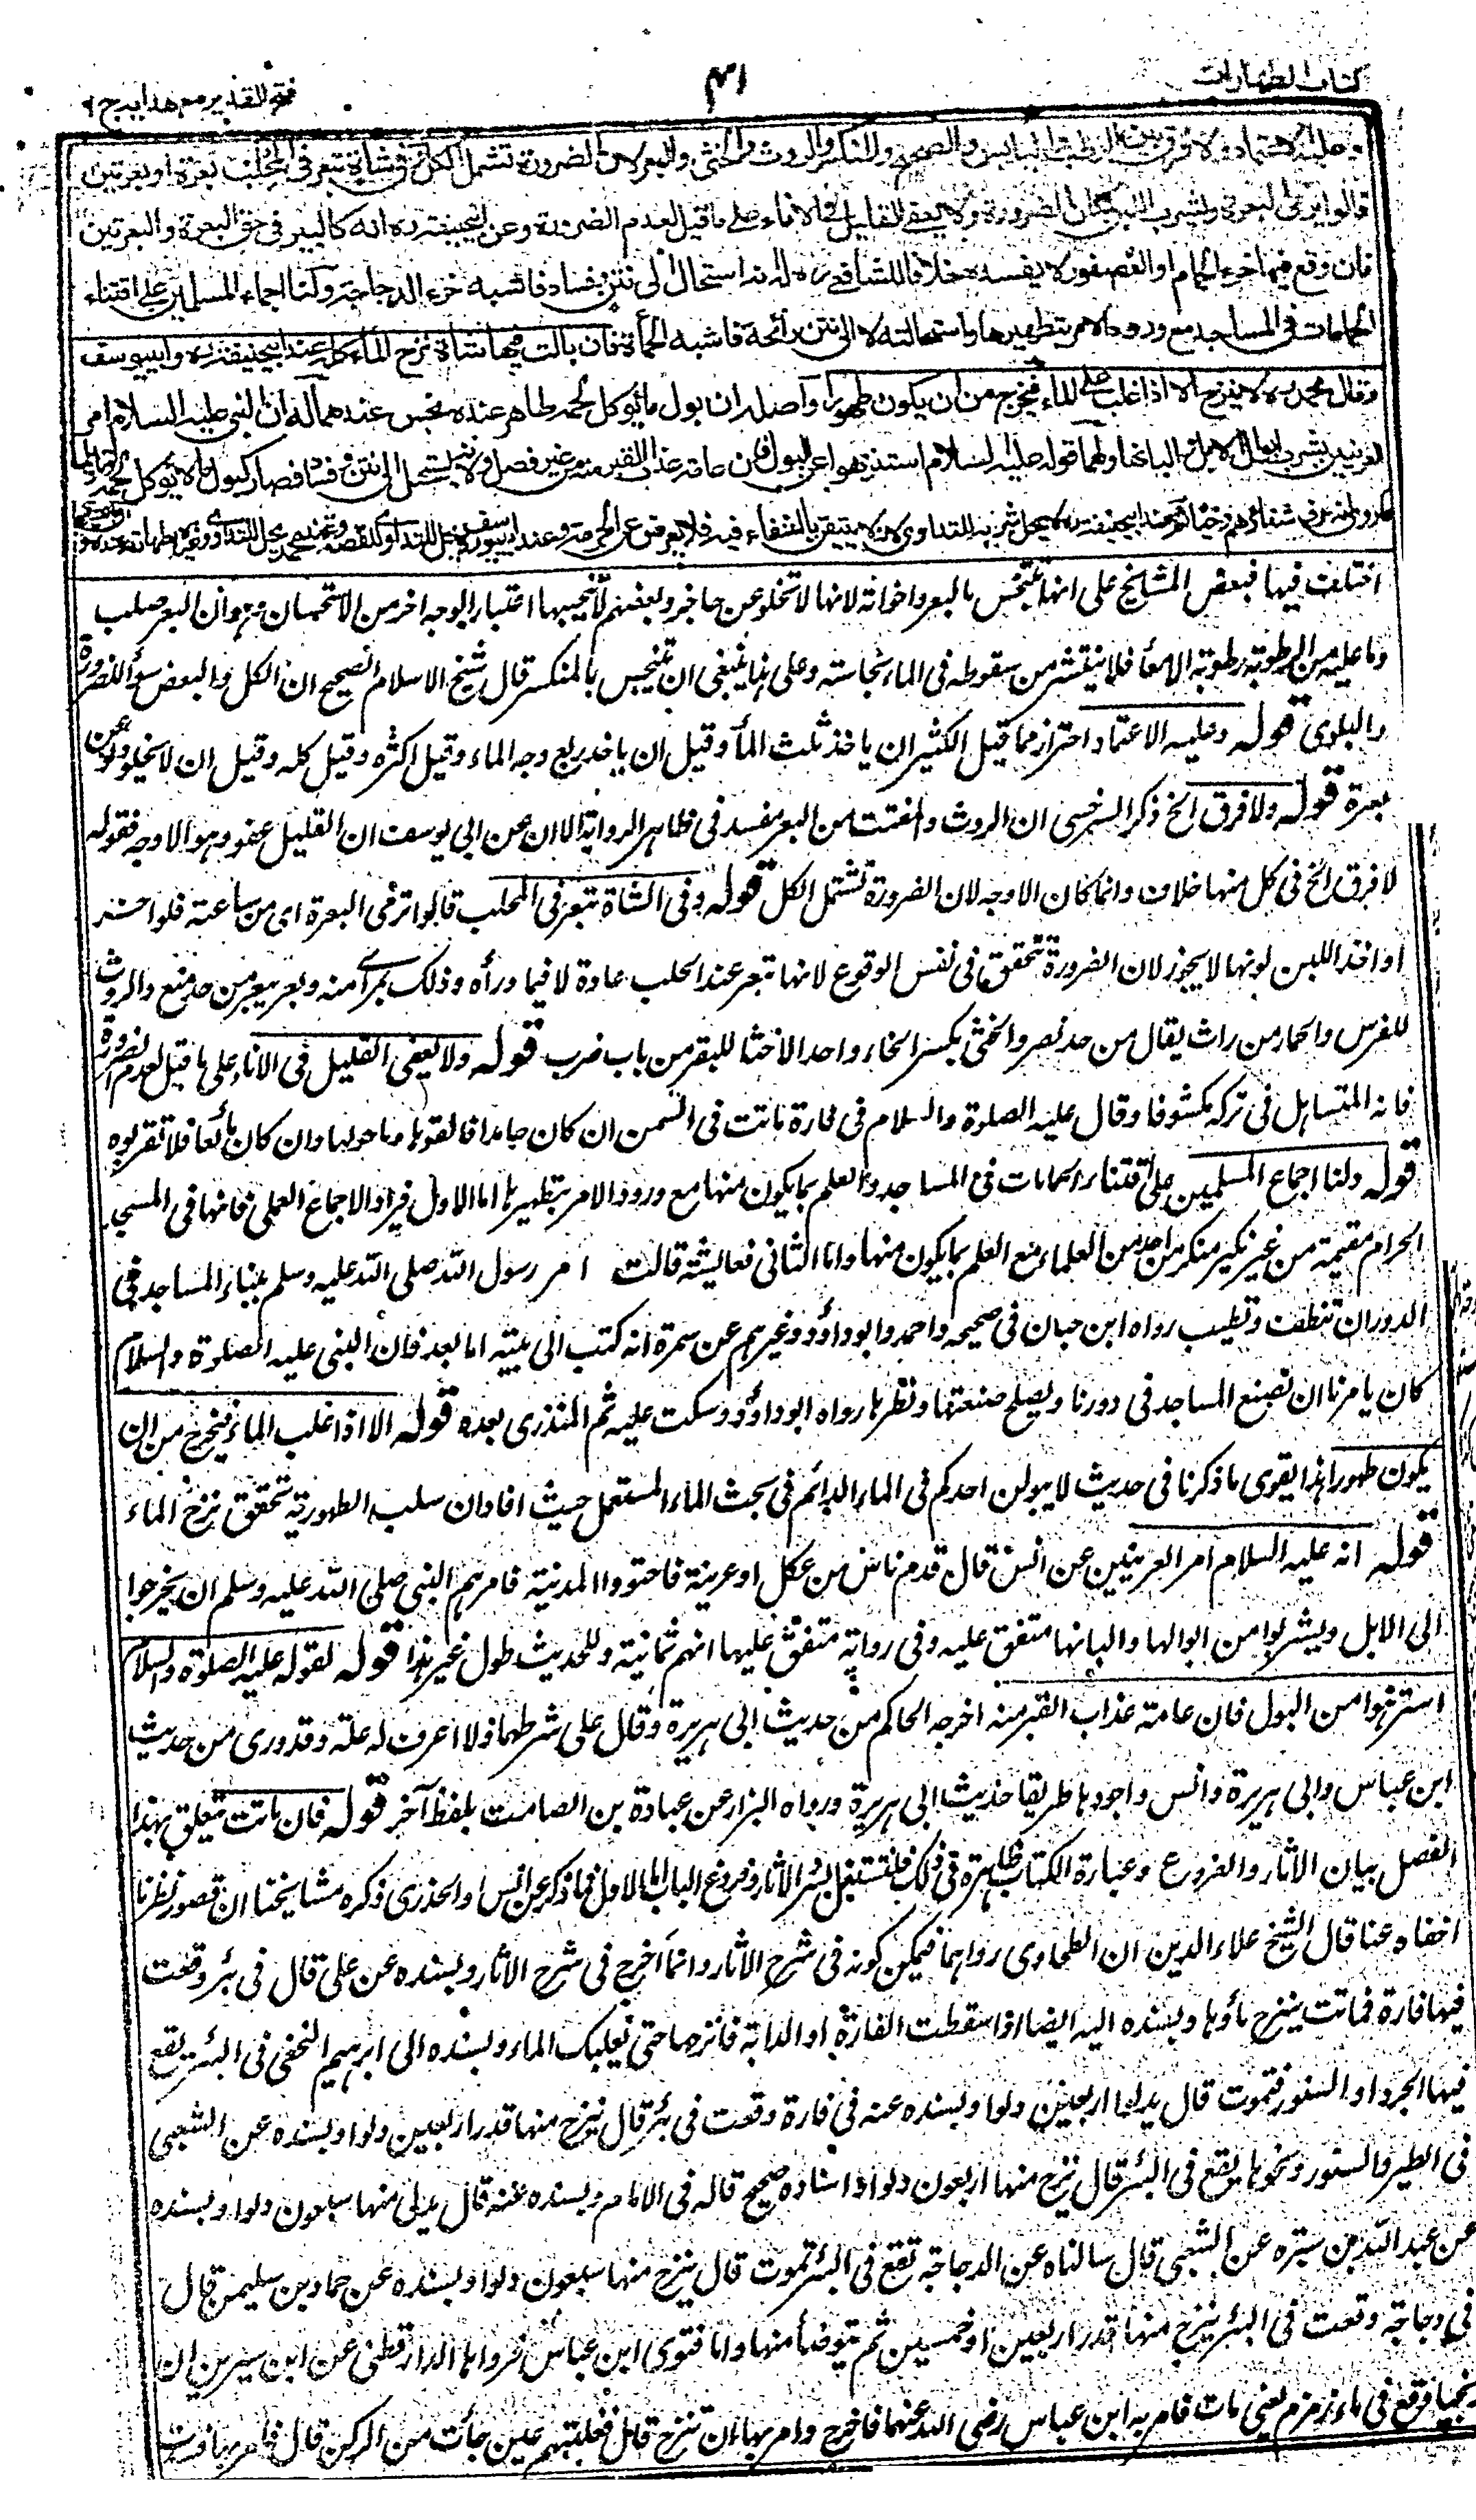 كتاب الطهارات
٤١
فتح القدير مع هدايه ج ١
وعليه الاعتماد ولا فرق بين الرطب واليابس والصحيح والمنكسر والروث والخثي والبعر لان الضرورة تشمل الكل وفي شاة تبعر في المحلب بعرة او بعرتين
قالوا ترمى البعرة ويشرب اللبن لمكان الضرورة ولا يعفى القليل في الاناء على ما قيل لعدم الضرورة وعن ابيحنيفة ره انه كالبير في حق البعرة والبعرتين
فان وقع فيها خرء الحمام او العصفور لا يفسده خلافا للشافعي ره له انه استحال الى نتن وفساد فاشبه خرء الدجاجة ولنا اجماع المسلمين على اقتناء
الحمامات في المساجد مع ورود الامر بتطهيرها واستحالته لا الى نتن رائحة فاشبه الحمأة فان بالت فيها شاة نزح الماء كله عند ابيحنيفة ره وابييوسف
وقال محمد ره لا ينزح الا اذا غلب على الماء فيخرج من ان يكون طهورا واصله ان بول ما يؤكل لحمه طاهر عنده نجس عندهما له ان النبي عليه السلام امر
العرنيين بشرب ابوال الابل والبانها ولهما قوله عليه السلام استنزهوا عن البول فان عامة عذاب القبر منه من غير فصل ولانه يستحيل الى نتن وفساد فصار كبول ما لا يؤكل لحمه وتاويل
ما روى انه عرف شفاءهم وحيا ثم عند ابيحنيفة ره لا يحل شربه للتداوي لانه لا يتيقن بالشفاء فيه فلا يعرض عن الحرمة وعند ابييوسف ره يحل للتداوي للقصة وعند محمد يحل للتداوي وغيره لطهارته عنده
اختلف فيها فبعض المشايخ على انها تتنجس بالبعر واخواته لانها لا تخلو عن حاجز وبعضهم لا تنجيها اعتبار الوجه اخر من الاستحسان هو ان البعر صلب
وما عليه من الرطوبة رطوبة الامعاء فلا ينتشر من سقوطه في الماء نجاسته وعلى هذا ينبغي ان تتنجس بالمنكسر قال شيخ الاسلام الصحيح ان الكل والبعض سواء للضرورة
والبلوى قوله وعليه الاعتماد احتراز مما قيل الكثير ان ياخذ ثلث الماء وقيل ان ياخذ ربع وجه الماء وقيل اكثره وقيل كله وقيل ان لا يخلو دلو عن
بعرة قوله ولا فرق الخ ذكر السرخسي ان الروث والمفتت من البعر مفسد في ظاهر الرواية الا ان عن ابي يوسف ان القليل عفو وهو الاوجه فقوله
لا فرق الخ في كل منها خلاف وانما كان الاوجه لان الضرورة تشتمل الكل قوله وفي الشاة تبعر في المحلب قالوا ترمى البعرة اى من ساعته فلو اخر
او اخذ اللبن لونها لا يجوز لان الضرورة تتحقق في نفس الوقوع لانها تبعر عند الحلب عادة لا فيما وراءه وذلك بمرأى منه وبعر يبعر من حد منع والروث
للفرس والحمار من راث يقال من حد نصر والخثي بكسر الخاء واحد الاخثاء للبقر من باب ضرب قوله ولا يعفى القليل في الاناء على ما قيل لعدم الضرورة
فانه المتساهل في تركه مكشوفا وقال عليه الصلوة والسلام في فارة ماتت في السمن ان كان جامدا فالقوها وما حولها وان كان مائعا فلا تقربوه
قوله ولنا اجماع المسلمين على اقتناء الحمامات في المساجد والعلم بما يكون منها مع ورود الامر بتطهيرها اما الاول فيراد الاجماع العملي فانها في المسجد
الحرام مقيمة من غير نكير منكر من احد من العلماء مع العلم بما يكون منها واما الثاني فعايشة قالت امر رسول الله صلى الله عليه وسلم ببناء المساجد في
الدور ان تنظف وتطيب رواه ابن حبان في صحيحه واحمد وابو داؤد وغيرهم عن سمرة انه كتب الى بنيه اما بعد فان النبي عليه الصلوة والسلام
كان يامرنا ان نصنع المساجد في دورنا ونصلح صنعتها ونطهرها رواه ابو داؤد وسكت عليه ثم المنذرى بعده قوله الا اذا غلب الماء فيخرج من ان
يكون طهورا هذا يقوى ما ذكرنا في حديث لا يبولن احدكم في الماء الدائم في بحث الماء المستعمل حيث افاد ان سلب الطهورية تحقق نزح الماء
قوله انه عليه السلام امر العرنيين عن انس قال قدم ناس من عكل او عرينة فاجتووا المدينة فامرهم النبي صلى الله عليه وسلم ان يخرجوا
الى الابل ويشربوا من ابوالها والبانها متفق عليه وفي رواية متفق عليها انهم ثمانية وللحديث طول غير هذا قوله لقوله عليه الصلوة والسلام
استنزهوا من البول فان عامة عذاب القبر منه اخرجه الحاكم من حديث ابي هريرة وقال على شرطهما ولا اعرف له علة وقد روى من حديث
ابن عباس وابي هريرة وانس واجودها طريقا حديث ابي هريرة ورواه البزار عن عبادة بن الصامت بلفظ آخر قوله فان ماتت يتعلق بهذا
الفصل بيان الاثار والفروع وعبارة الكتاب ظاهرة في ذلك فلنشتغل بسرد الاثار وفروع الباب اما الاول فما ذكر عن انس والخدرى ذكره مشايخنا ان قصور نظرنا
اخفاه عنا قال الشيخ علاء الدين ان الطحاوى رواهما فيمكن كونه في شرح الاثار وانما اخرج في شرح الاثار وبسنده عن على قال في بئر وقعت
فيها فارة فماتت ينزح ماؤها وبسنده اليه ايضا اذا سقطت الفارة او الدابة فانزحها حتى يغلبك الماء وبسنده الى ابرهيم النخعى في البئر يقع
فيها الجرذ او السنور فتموت قال يدلو اربعين دلوا وبسنده عنه في فارة وقعت في بئر قال ينزح منها قدر اربعين دلوا وبسنده عن الشعبى
في الطير والسنور ونحوها يقع في البئر قال ينزح منها اربعون دلوا واسناده صحيح قاله في الامام وبسنده عنه قال يدلى منها سبعون دلوا وبسنده
عن عبد الله بن سبرة عن الشعبى قال سالناه عن الدجاجة تقع في البئر تموت قال ينزح منها سبعون دلوا وبسنده عن حماد بن سليمن قال
في دجاجة وقعت في البئر ينزح منها قدر اربعين او خمسين ثم يتوضأ منها واما فتوى ابن عباس فرواها الدارقطنى عن ابن سيرين ان
زنجيا وقع في ماء زمزم يعنى مات فامر به ابن عباس رضى الله عنهما فاخرج وامر بها ان تنزح قال فغلبتهم عين جاءت من الركن قال فامر بها فدست